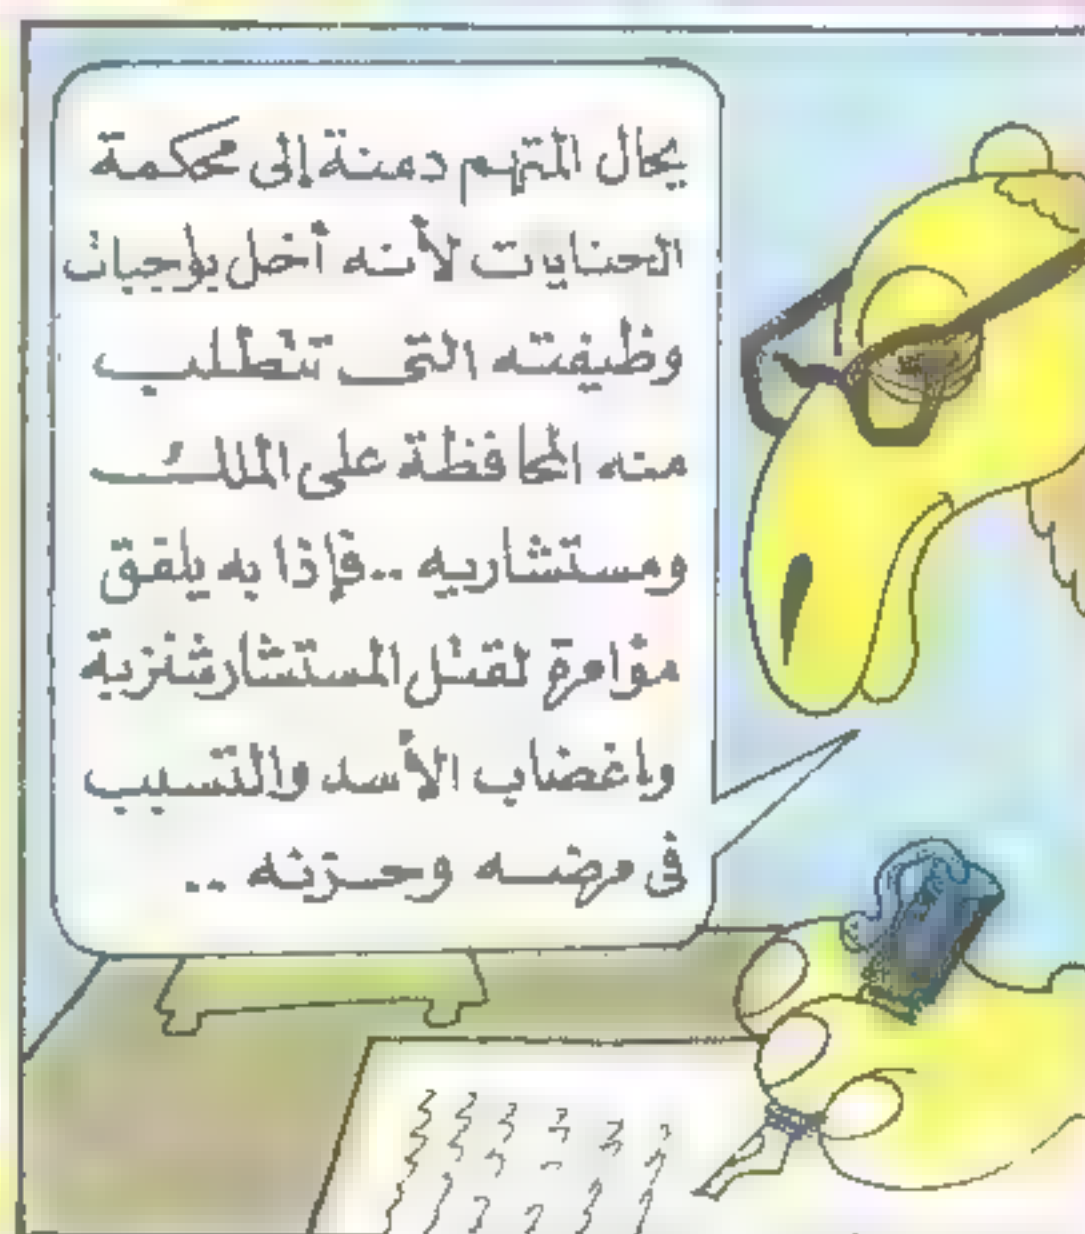 يحال المتهم دمنة إلى محكمة
الجنايات لأنه أخل بواجبات
وظيفته التى تتطلب
منه المحافظة على الملك
ومستشاريه ..فإذا به يلفق
مؤامرة لقتل المستشار شنزبة
وإغضاب الأسد والتسبب
فى مرضه وحزنه ..